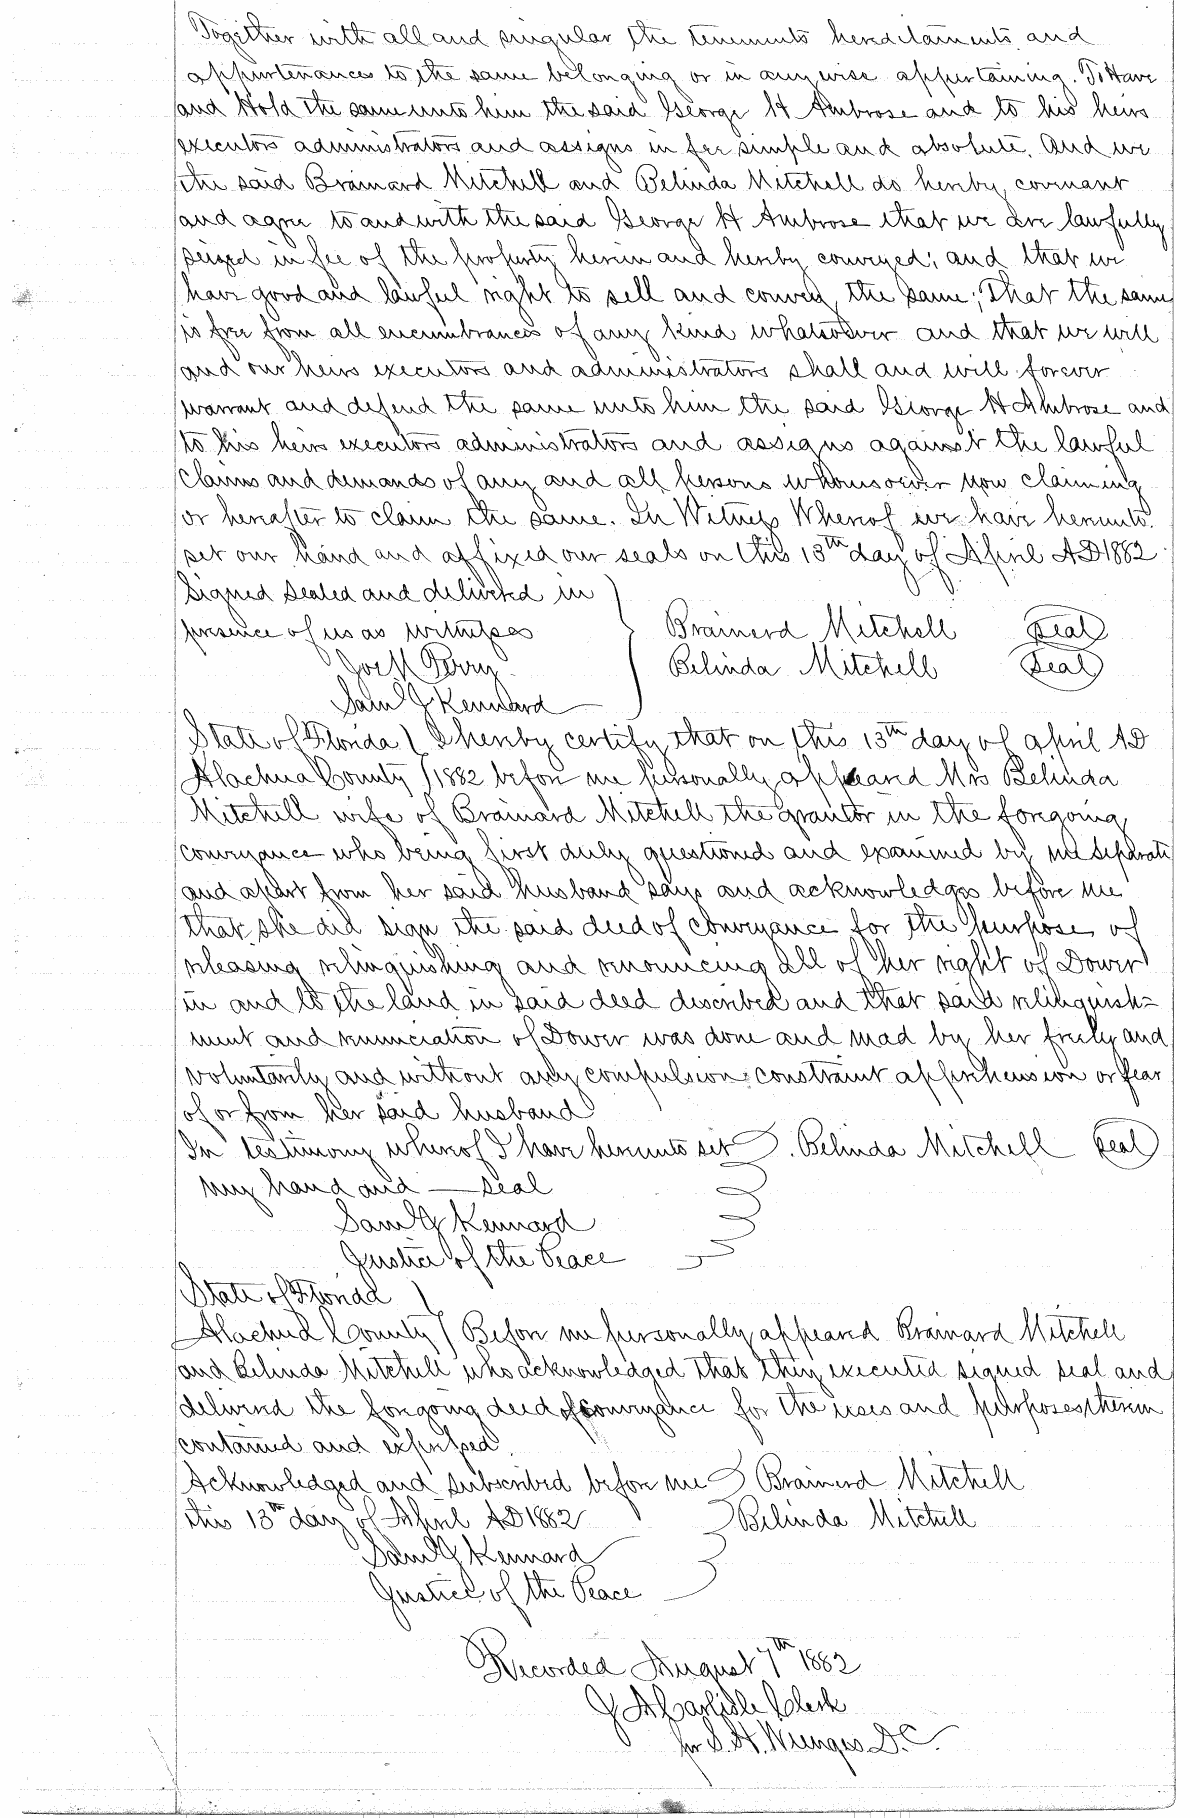 Together with all and singular the tenements hereditaments and
appurtenances to the same belonging or in any wise appertaining. To Have
and Hold the same unto him the said George H Ambrose and to his heirs
executors administrators and assigns in fee simple and absolute. And we
the said Brainard Mitchell and Belinda Mitchell do hereby covenant
and agree to and with the said George H Ambrose that we are lawfully
seized in fee of the property herein and hereby conveyed; and that we
have good and lawful right to sell and convey the same; That the same
is free from all encumbrances of any kind whatsoever and that we will
and our heirs executors and administrators shall and will forever
warrant and defend the same unto him the said George H Ambrose and
to his heirs executors administrators and assigns against the lawful
claims and demands of any and all persons whomsoever now claiming
or hereafter to claim the same. In Witness Whereof we have hereunto
set our hand and affixed our seals on this 13th day of April AD 1882
Signed sealed and delivered in
presence of us as witnesses Brainerd Mitchell seal
Joe Perry Belinda Mitchell seal
Saml J Kennard
State of Florida I hereby certify that on this 13th day of april AD
Alachua County 1882 before me personally appeared Mrs Belinda
Mitchell wife of Brainard Mitchell the grantor in the foregoing
conveyance who being first duly questioned and examined by me separate
and apart from her said husband says and acknowledges before me
that she did sign the said deed of conveyance for the purpose of
releasing relinquishing and renouncing all of her right of Dower
in and to the land in said deed described and that said relinquish=
ment and renunciation of Dower was done and mad by her freely and
voluntarily and without any compulsion constraint apprehension or fear
of or from her said husband
In testimony whereof I have hereunto set . Belinda Mitchell seal
my hand and — seal
Saml J Kennard
Justice of the Peace
State of Florida
Alachua County Before me personally appeared Brainard Mitchell
and Belinda Mitchell who acknowledged that they executed signed seal and
delivered the foregoing deed of conveyance for the uses and purposes therein
contained and expressed
Acknowledged and subscribed before me Brainerd Mitchell
this 13th day of April AD 1882 Belinda Mitchell
Saml J Kennard
Justice of the Peace
Recorded August 7th 1882
J A Carlisle Clerk
for S. H. Wienges D.C.